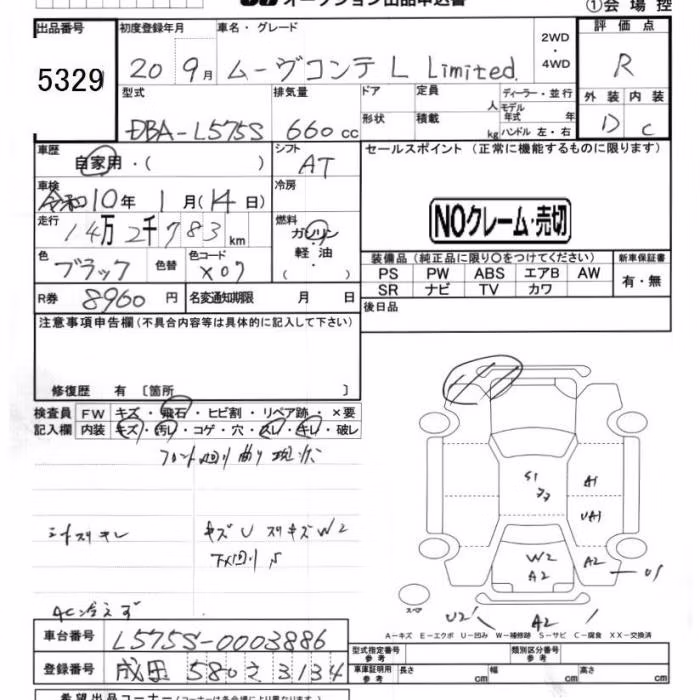 オークション出品申込書
①会場控
出品番号 初度登録年月 車名・グレード 2WD ・ 4WD 評価点
5329 20 9月 ムーヴコンテ L Limited. R
型式 排気量 ドア 定員 人 ディーラー・並行 外装 内装
モデル年式 年
DBA-L575S 660cc 形状 積載 kg ハンドル 左・右 D C
車歴 自家用・( ) シフト AT セールスポイント (正常に機能するものに限ります)
車検 令和10年 1月(14日) 冷房
NOクレーム・売切
走行 14万2千783km 燃料 ガソリン・軽油・( )
色 ブラック 色替 色コード X07 装備品(純正品に限り○をつけてください) 新車保証書
PS PW ABS エアB AW 有・無
SR ナビ TV カワ
R券 8960円 名変通知期限 月 日 後日品
注意事項申告欄(不具合内容等は具体的に記入して下さい)
修復歴 有 〔箇所 〕
検査員 FW キズ・飛石・ヒビ割・リペア跡・×要
記入欄 内装 キズ・汚れ・コゲ・穴・スレ・キレ・破レ
フロント廻り曲り
シートスリキレ キズU スリキズW2
下廻りS
AC冷えず
S1
A1
UA1
W2
A2
A2
U1
U2
A2
スペア
A－キズ E－エクボ U－凹み W－補修跡 S－サビ C－腐食 XX－交換済
車台番号 L575S-0003886 型式指定番号 参考 類別区分番号 参考
登録番号 成田 580 3134 車庫証明用 参考 長さ cm 幅 cm 高さ cm
希望出品コーナー(コーナーは各会場により異なります)